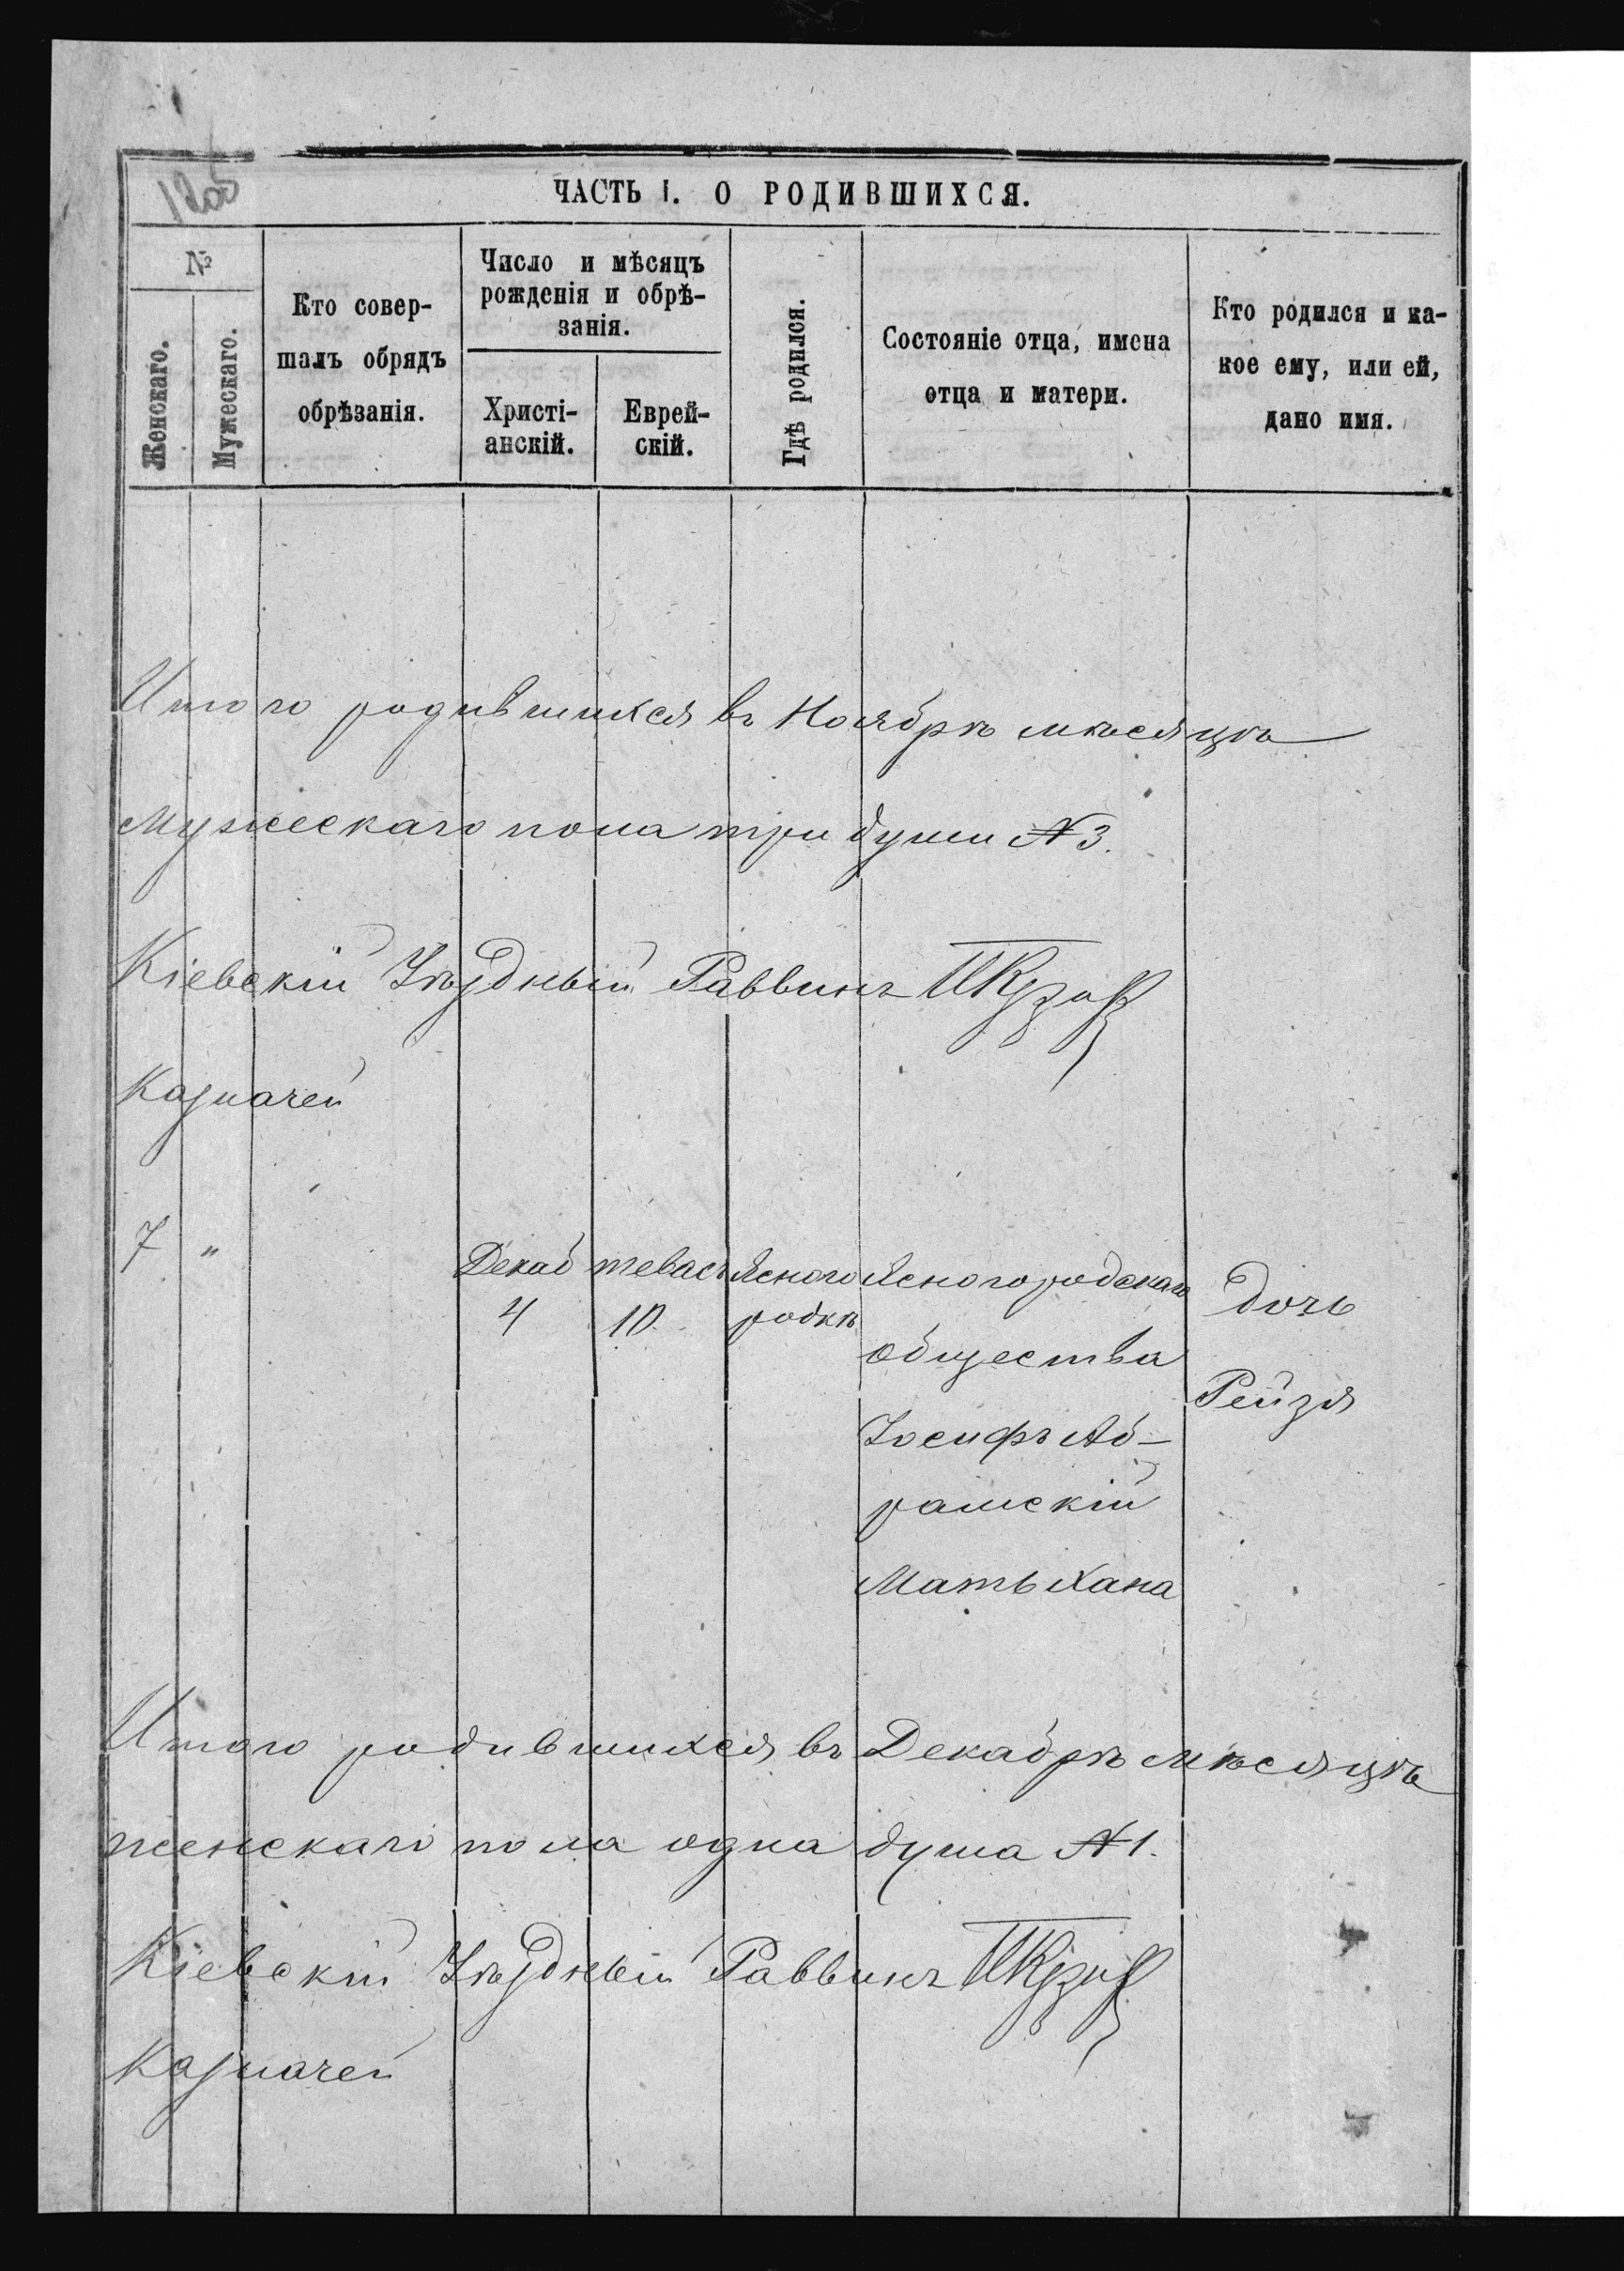 ЧАСТЬ I. О РОДИВШИХСЯ.
№
Женскаго.
Мужескаго.
Кто совер-
шалъ обрядъ
обрѣзанія.
Число и мѣсяцъ
рожденія и обрѣ-
занія.
Христі-
анскій.
Еврей-
скій.
Гдѣ родился.
Состояніе отца, имена
отца и матери.
Кто родился и ка-
кое ему, или ей,
дано имя.
Итого родившихся въ Ноябрѣ мѣсяцѣ
мужескаго пола три души № 3.
Кіевскій Уѣздный Раввинъ
Казначей
7 "
Декаб
4
тевас
10
Ясного
родкѣ
Ясногородскаго
общества
Іосифъ Аб-
рамскій
Мать Хана
дочь
Рейзя
Итого родившихся въ Декабрѣ мѣсяцѣ
женскаго пола одна душа № 1.
Кіевскій Уѣздный Раввинъ
Казначей